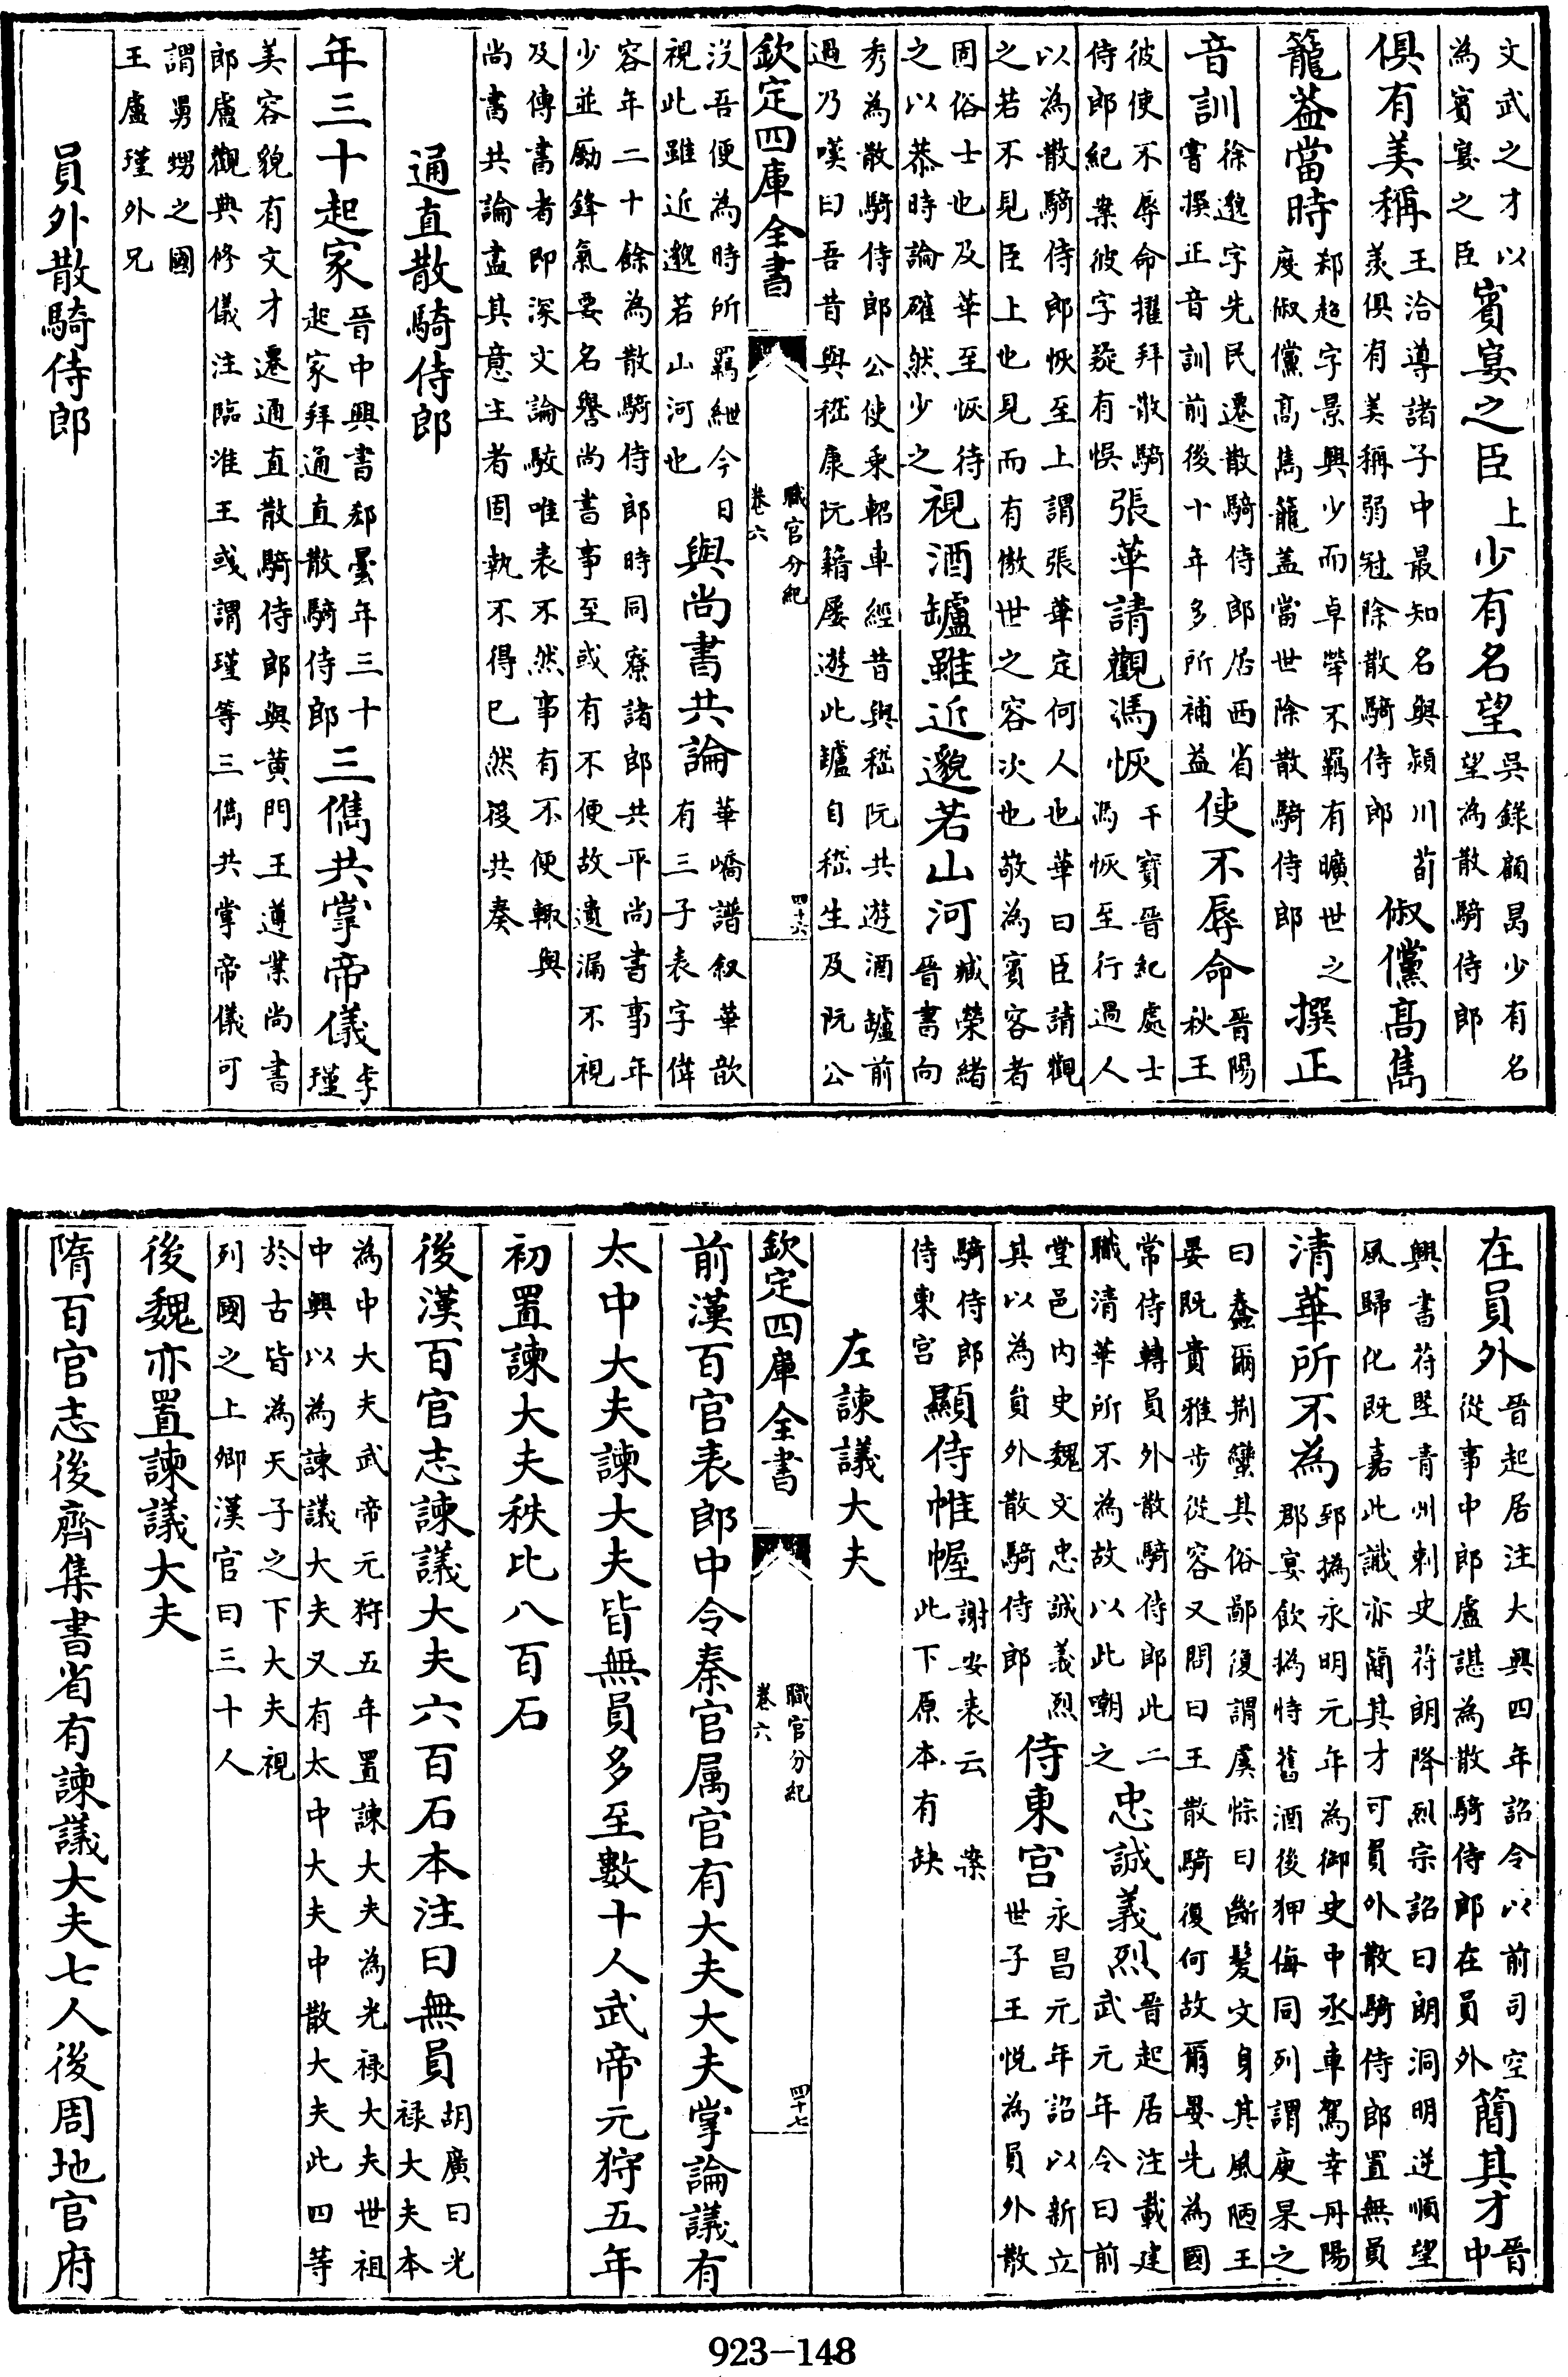 文武之才以為賓宴之臣賓宴之臣上少有名望吳錄顧曷少有名望為散騎侍郎
俱有美稱王洽導諸子中最知名與潁川荀羨俱有美稱弱冠除散騎侍郎俶儻髙雋
籠葢當時郄超字景興少而卓犖不羈有曠世之度俶儻髙雋籠蓋當世除散騎侍郎撰正
音訓徐邈字先民遷散騎侍郎居西省嘗撰正音訓前後十年多所補益使不辱命晉陽秋王
彼使不辱命擢拜散騎侍郎紀案彼字疑有悞張華請觀馮恢干寶晉紀處士馮恢至行過人
以為散騎侍郎恢至上謂張華定何人也華曰臣請觀之若不見臣上也見而有慠世之容次也敬為賓客者
固俗士也及華至恢待之以恭時論確然少之視酒罏雖近邈若山河臧榮緒晉書向
秀為散騎侍郎公使乗軺車經昔與嵇阮共遊酒罏前過乃嘆曰吾昔與嵇康阮籍屢遊此罏自嵇生及阮公
欽定四庫全書 職官分紀 卷六 四十六
沒吾便為時所羈紲今日視此雖近邈若山河也與尚書共論華嶠譜叙華歆有三子表字偉
容年二十餘為散騎侍郎時同寮諸郎共平尚書事年少並勵鋒氣要名譽尚書事至或有不便故遺漏不視
及傳書者即深文論駮唯表不然事有不便輙與尚書共論盡其意主者固執不得已然後共奏
通直散騎侍郎
年三十起家晉中興書郄曇年三十起家拜通直散騎侍郎三儁共掌帝儀李瑾
美容貌有文才遷通直散騎侍郎與黄門王遵業尚書郎盧觀典修儀注臨淮王彧謂瑾等三儁共掌帝儀可
謂舅甥之國王盧瑾外兄
員外散騎侍郎
在員外晉起居注大興四年詔令以前司空從事中郎盧諶為散騎侍郎在員外簡其才晉中
興書苻堅青州刺史苻朗降烈宗詔曰朗洞明逆順望風歸化既嘉此識亦簡其才可員外散騎侍郎置無員
清華所不為郅撝永明元年為御史中丞車駕幸丹陽郡宴飲撝恃舊酒後狎侮同列謂庾杲之
曰蠢爾荆蠻其俗鄙復謂虞悰曰斷髪文身其風陋王晏既貴雅步從容又問曰王散騎復何故爾晏先為國
常侍轉員外散騎侍郎此二職清華所不為故以此嘲之忠誠義烈晉起居注載建武元年令曰前
堂邑内史魏文忠誠義烈其以為員外散騎侍郎侍東宫永昌元年詔以新立世子王悅為員外散
騎侍郎侍東宫顯侍帷幄謝安表云案此下原本有缺
左諫議大夫
欽定四庫全書 職官分紀 卷六 四十七
前漢百官表郎中令秦官属官有大夫大夫掌論議有
太中大夫諫大夫皆無員多至數十人武帝元狩五年
初置諫大夫秩比八百石
後漢百官志諫議大夫六百石本注曰無員胡廣曰光禄大夫本
為中大夫武帝元狩五年置諫大夫為光禄大夫世祖中興以為諫議大夫又有太中大夫中散大夫此四等
於古皆為天子之下大夫視列國之上卿漢官曰三十人
後魏亦置諫議大夫
隋百官志後齊集書省有諫議大夫七人後周地官府
923-148